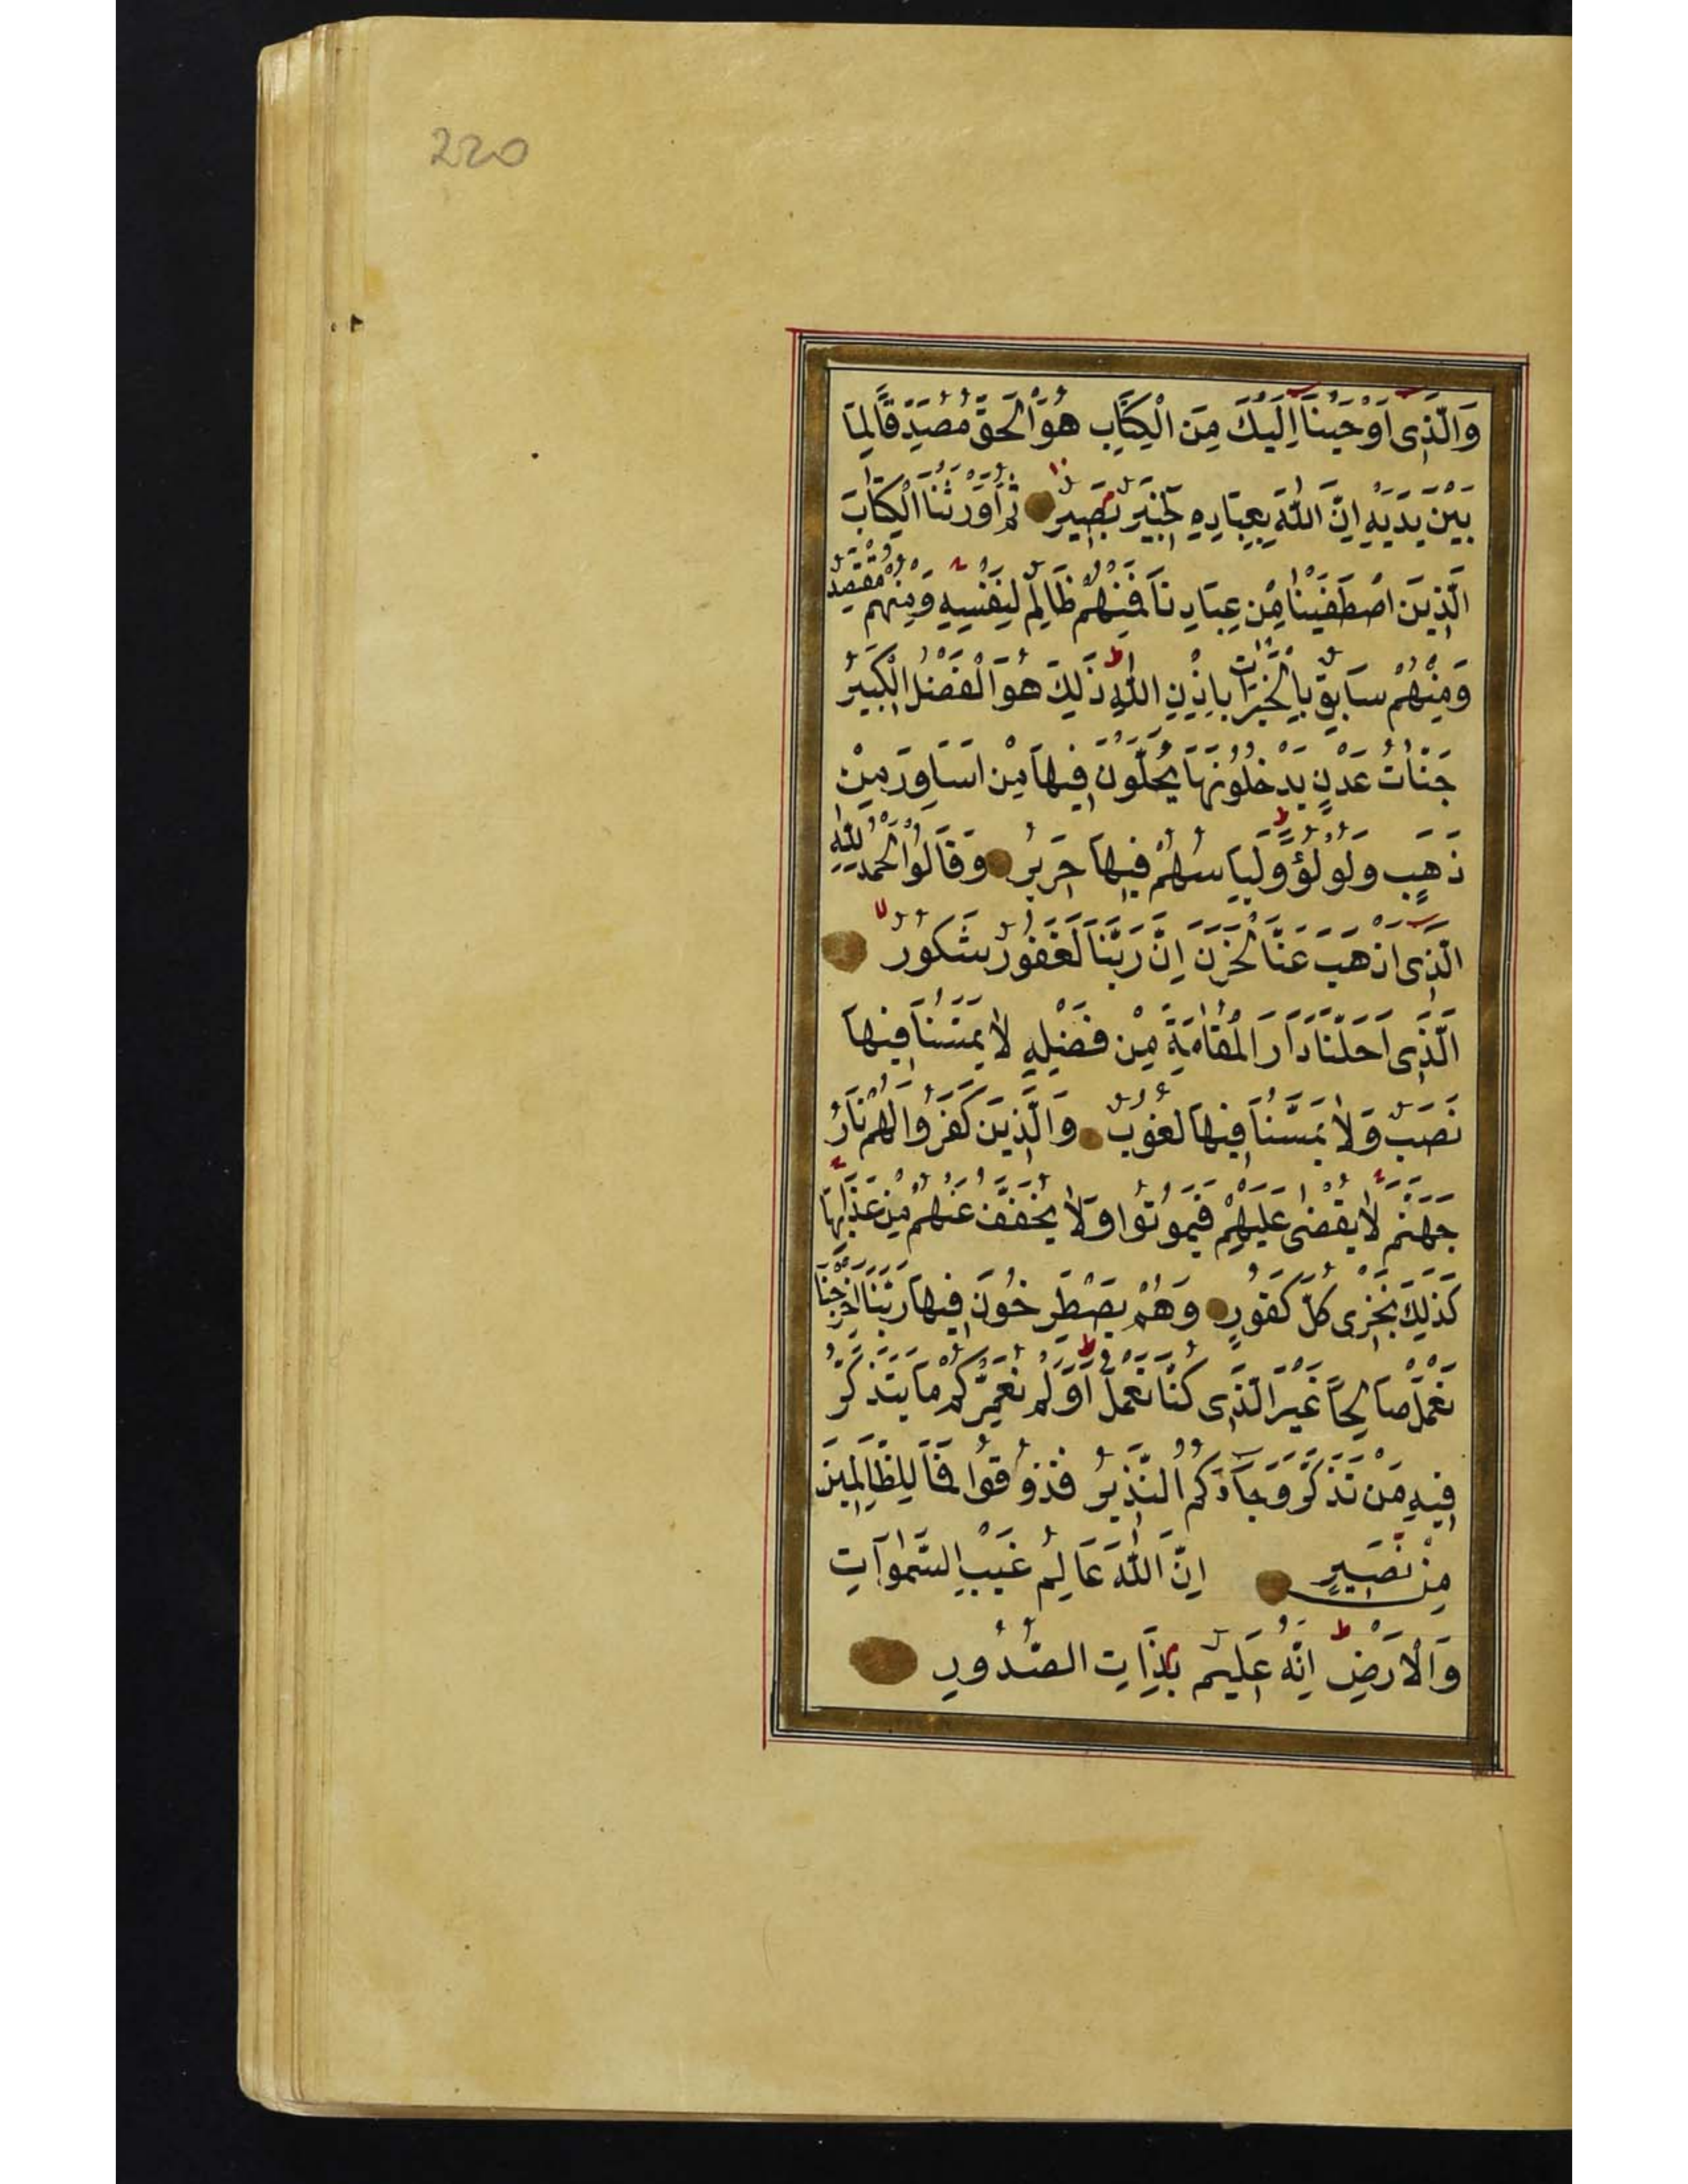 220
وَالَّذِى اَوْحَيْنَا اِلَيْكَ مِنَ الْكِتَابِ هُوَ الْحَقُّ مُصَدِّقًا لِمَا
بَيْنَ يَدَيْهِ اِنَّ اللّٰهَ بِعِبَادِهِ لَخَبِيرٌ بَصِيرٌ ثُمَّ اَوْرَثْنَا الْكِتَابَ
الَّذِينَ اصْطَفَيْنَا مِنْ عِبَادِنَا فَمِنْهُمْ ظَالِمٌ لِنَفْسِهِ وَمِنْهُمْ مُقْتَصِدٌ
وَمِنْهُمْ سَابِقٌ بِالْخَيْرَاتِ بِاِذْنِ اللّٰهِ ذَلِكَ هُوَ الْفَضْلُ الْكَبِيرُ
جَنَّاتُ عَدْنٍ يَدْخُلُونَهَا يُحَلَّوْنَ فِيهَا مِنْ اَسَاوِرَ مِنْ
ذَهَبٍ وَلُؤْلُؤًا وَلِبَاسُهُمْ فِيهَا حَرِيرٌ وَقَالُوا الْحَمْدُ لِلّٰهِ
الَّذِى اَذْهَبَ عَنَّا الْحَزَنَ اِنَّ رَبَّنَا لَغَفُورٌ شَكُورٌ
الَّذِى اَحَلَّنَا دَارَ الْمُقَامَةِ مِنْ فَضْلِهِ لَا يَمَسُّنَا فِيهَا
نَصَبٌ وَلَا يَمَسُّنَا فِيهَا لُغُوبٌ وَالَّذِينَ كَفَرُوا لَهُمْ نَارُ
جَهَنَّمَ لَا يُقْضٰى عَلَيْهِمْ فَيَمُوتُوا وَلَا يُخَفَّفُ عَنْهُمْ مِنْ عَذَابِهَا
كَذَلِكَ نَجْزِى كُلَّ كَفُورٍ وَهُمْ يَصْطَرِخُونَ فِيهَا رَبَّنَا اَخْرِجْنَا
نَعْمَلْ صَالِحًا غَيْرَ الَّذِى كُنَّا نَعْمَلُ اَوَلَمْ نُعَمِّرْكُمْ مَا يَتَذَكَّرُ
فِيهِ مَنْ تَذَكَّرَ وَجَآءَكُمُ النَّذِيرُ فَذُوقُوا فَمَا لِلظَّالِمِينَ
مِنْ نَصِيرٍ اِنَّ اللّٰهَ عَالِمُ غَيْبِ السَّمٰوَاتِ
وَالْاَرْضِ اِنَّهُ عَلِيمٌ بِذَاتِ الصُّدُورِ